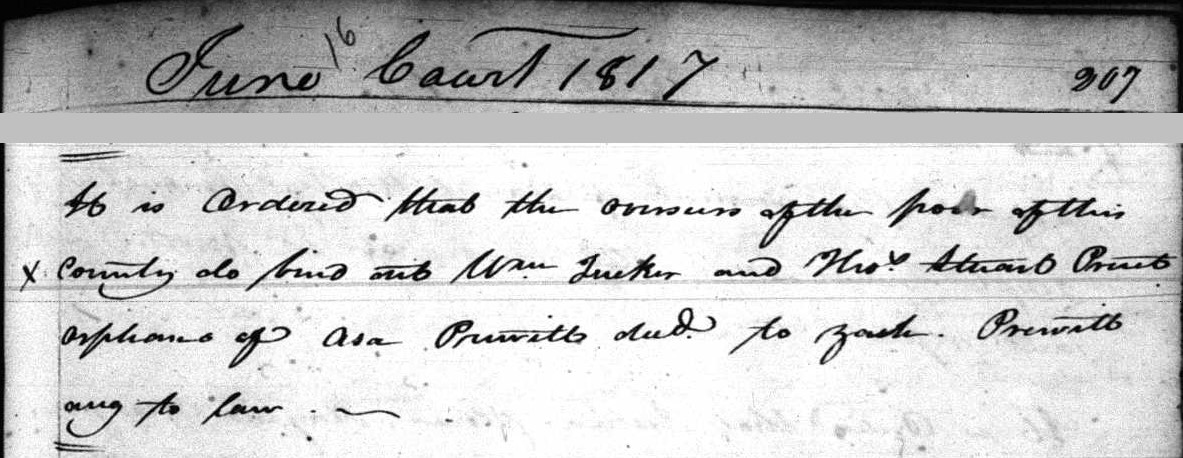 June 16 Court 1817 207
It is Ordered that the overseers of the poor of this
X County do bind out Wm Tucker and Thos Stuart Pruit
orphans of Asa Prewitt decd. to Zach. Prewitt
acg to law.